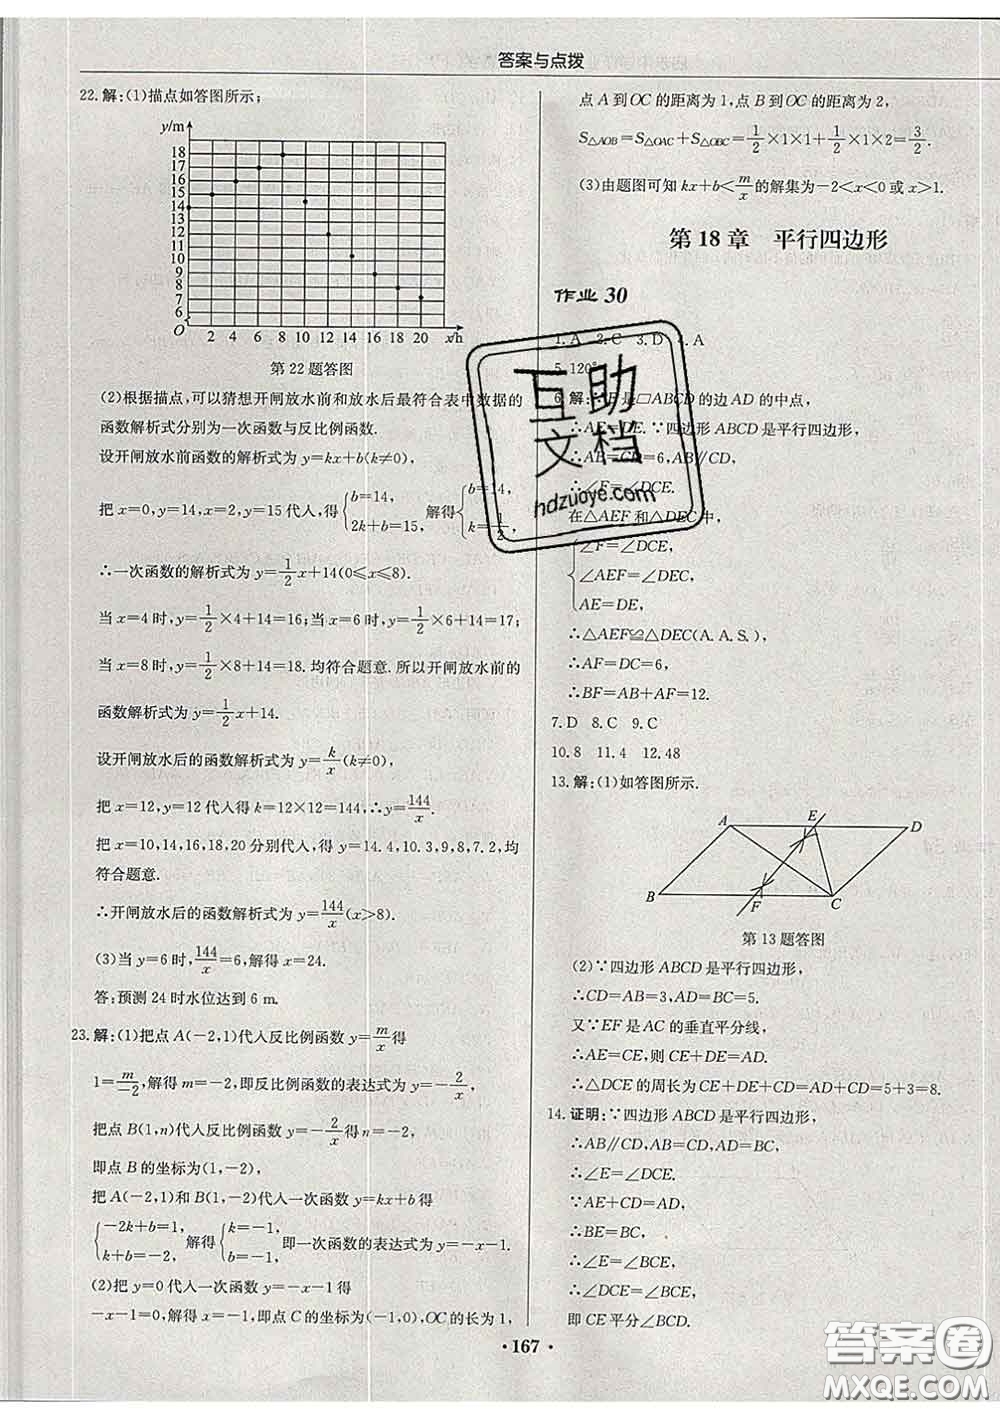 答案与点拨
22.解:(1)描点如答图所示;
y/m
18
17
16
15
14
13
12
11
10
9
8
7
6
O 2 4 6 8 10 12 14 16 18 20 x/h
第22题答图
(2)根据描点,可以猜想开闸放水前和放水后最符合表中数据的
函数解析式分别为一次函数与反比例函数.
设开闸放水前函数的解析式为y=kx+b(k≠0),
把x=0,y=14,x=2,y=15代人,得{b=14, 2k+b=15, 解得{b=14, k=1/2,
∴一次函数的解析式为y=1/2x+14(0≤x≤8).
当x=4时,y=1/2×4+14=16;当x=6时,y=1/2×6+14=17;
当x=8时,y=1/2×8+14=18.均符合题意.所以开闸放水前的
函数解析式为y=1/2x+14.
设开闸放水后的函数解析式为y=k/x(k≠0),
把x=12,y=12代人得k=12×12=144,∴y=144/x.
把x=10,14,16,18,20分别代人,得y=14.4,10.3,9,8,7.2,均
符合题意.
∴开闸放水后的函数解析式为y=144/x(x>8).
(3)当y=6时,144/x=6,解得x=24.
答:预测24时水位达到6 m.
23.解:(1)把点A(-2,1)代人反比例函数y=m/x得
1=m/-2,解得m=-2,即反比例函数的表达式为y=-2/x,
把点B(1,n)代人反比例函数y=-2/x得n=-2,
即点B的坐标为(1,-2),
把A(-2,1)和B(1,-2)代人一次函数y=kx+b得
{-2k+b=1, k+b=-2, 解得{k=-1, b=-1, 即一次函数的表达式为y=-x-1.
(2)把y=0代人一次函数y=-x-1得
-x-1=0,解得x=-1,即点C的坐标为(-1,0),OC的长为1,
点A到OC的距离为1,点B到OC的距离为2,
S△AOB=S△OAC+S△OBC=1/2×1×1+1/2×1×2=3/2.
(3)由题图可知kx+b<m/x的解集为-2<x<0或x>1.
第18章 平行四边形
作业30
1.A 2.C 3.D 4.A
5.120°
6.解:∵E是□ABCD的边AD的中点,
∴AE=DE.∵四边形ABCD是平行四边形,
∴AB=CD=6,AB∥CD,
∴∠F=∠DCE.
在△AEF和△DEC中,
{∠F=∠DCE,
∠AEF=∠DEC,
AE=DE,
∴△AEF≌△DEC(A.A.S.),
∴AF=DC=6,
∴BF=AB+AF=12.
7.D 8.C 9.C
10.8 11.4 12.48
13.解:(1)如答图所示.
A E D
B F C
第13题答图
(2)∵四边形ABCD是平行四边形,
∴CD=AB=3,AD=BC=5.
又∵EF是AC的垂直平分线,
∴AE=CE,则CE+DE=AD.
∴△DCE的周长为CE+DE+CD=AD+CD=5+3=8.
14.证明:∵四边形ABCD是平行四边形,
∴AB∥CD,AB=CD,AD=BC,
∴∠E=∠DCE.
∵AE+CD=AD,
∴BE=BC,
∴∠E=∠BCE,
∴∠DCE=∠BCE,
即CE平分∠BCD.
• 167 •
互助
文档
hdzuoye.com
答案圈
MXQE.COM